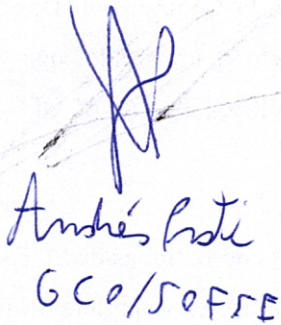 Andrés Prati
GCO/SOFSE